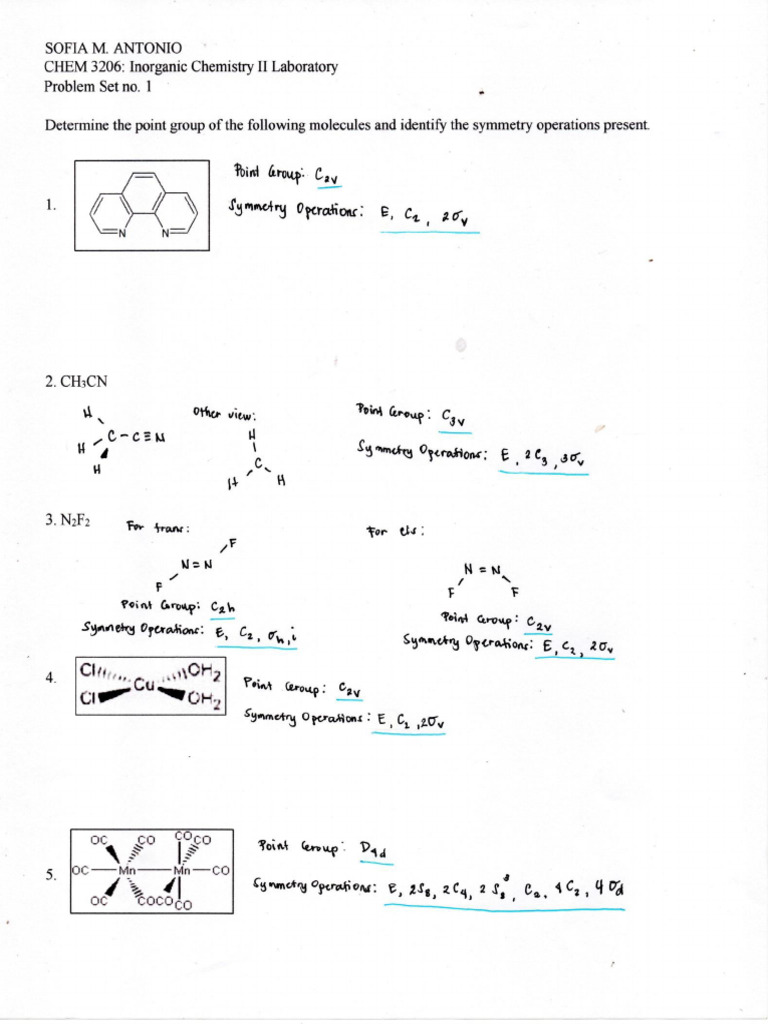 SOFIA M. ANTONIO
CHEM 3206: Inorganic Chemistry II Laboratory
Problem Set no. 1
Determine the point group of the following molecules and identify the symmetry operations present.
1.
N N
Point Group: C₂ᵥ
Symmetry Operations: E, C₂, 2σᵥ
2. CH₃CN
H
H C – C ≡ N
H
Other view:
H
C
H H
Point Group: C₃ᵥ
Symmetry Operations: E, 2C₃, 3σᵥ
3. N₂F₂
For trans:
F
N = N
F
Point Group: C₂h
Symmetry Operations: E, C₂, σh, i
For cis:
N = N
F F
Point Group: C₂ᵥ
Symmetry Operations: E, C₂, 2σᵥ
4.
Cl Cu OH₂
Cl OH₂
Point Group: C₂ᵥ
Symmetry Operations: E, C₂, 2σᵥ
5.
OC CO COCO
OC Mn Mn CO
OC COCOCO
Point Group: D₄d
Symmetry Operations: E, 2S₈, 2C₄, 2S₈³, C₂, 4C₂, 4σd